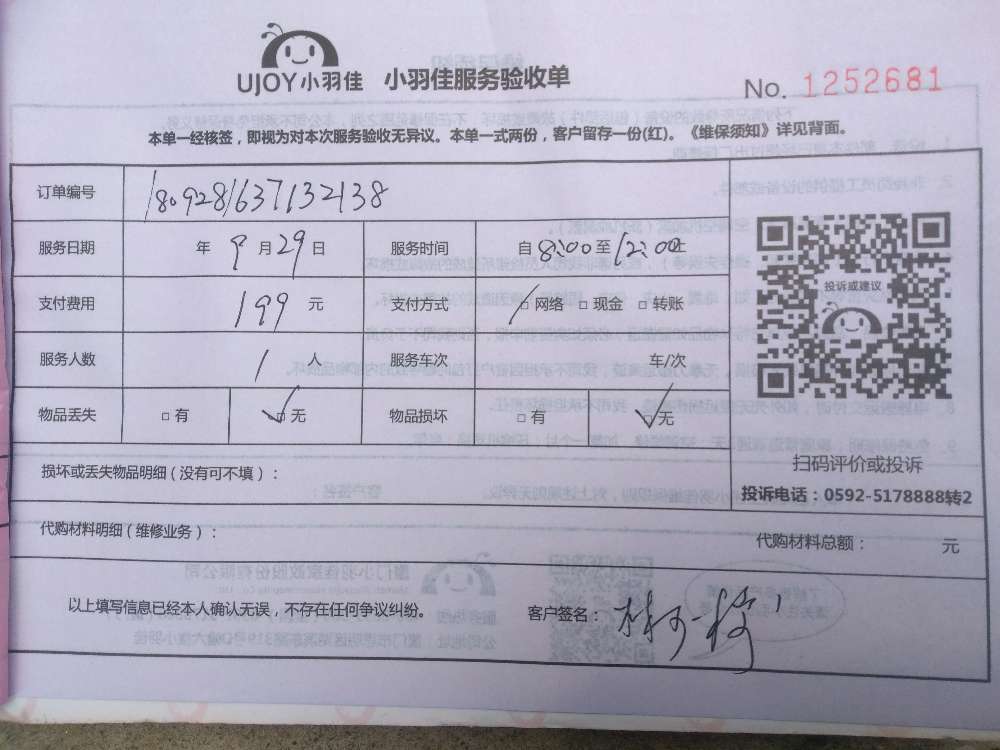 UJOY小羽佳 小羽佳服务验收单
No. 1252681
本单一经核签，即视为对本次服务验收无异议。本单一式两份，客户留存一份(红)。《维保须知》详见背面。
订单编号 1809281637132138
服务日期 年 9 月 29 日 服务时间 自 8:00 至 12:00 止
支付费用 199 元 支付方式 □ 网络 □ 现金 □ 转账
服务人数 1 人 服务车次 车/次
物品丢失 □ 有 ✓□ 无 物品损坏 □ 有 ✓□ 无
投诉或建议
扫码评价或投诉
投诉电话：0592-5178888转2
损坏或丢失物品明细（没有可不填）：
代购材料明细（维修业务）： 代购材料总额： 元
以上填写信息已经本人确认无误，不存在任何争议纠纷。 客户签名：